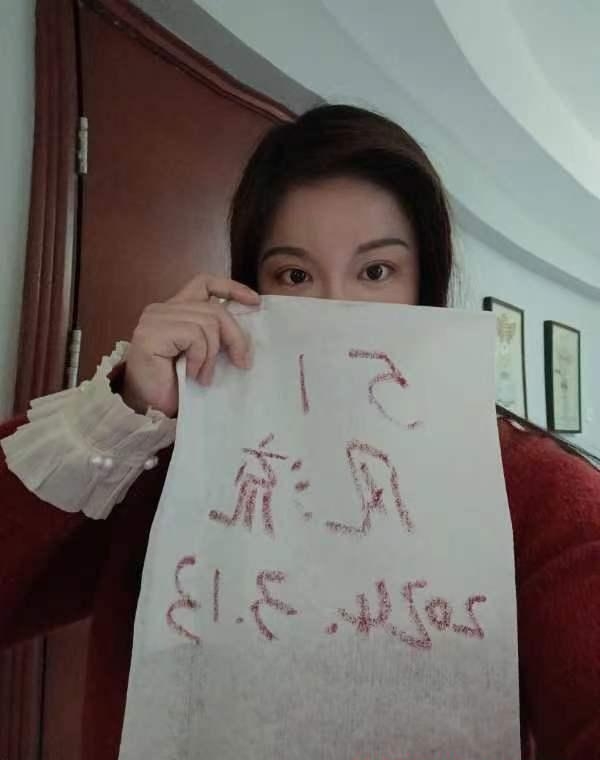 51
风流
2024.3.13